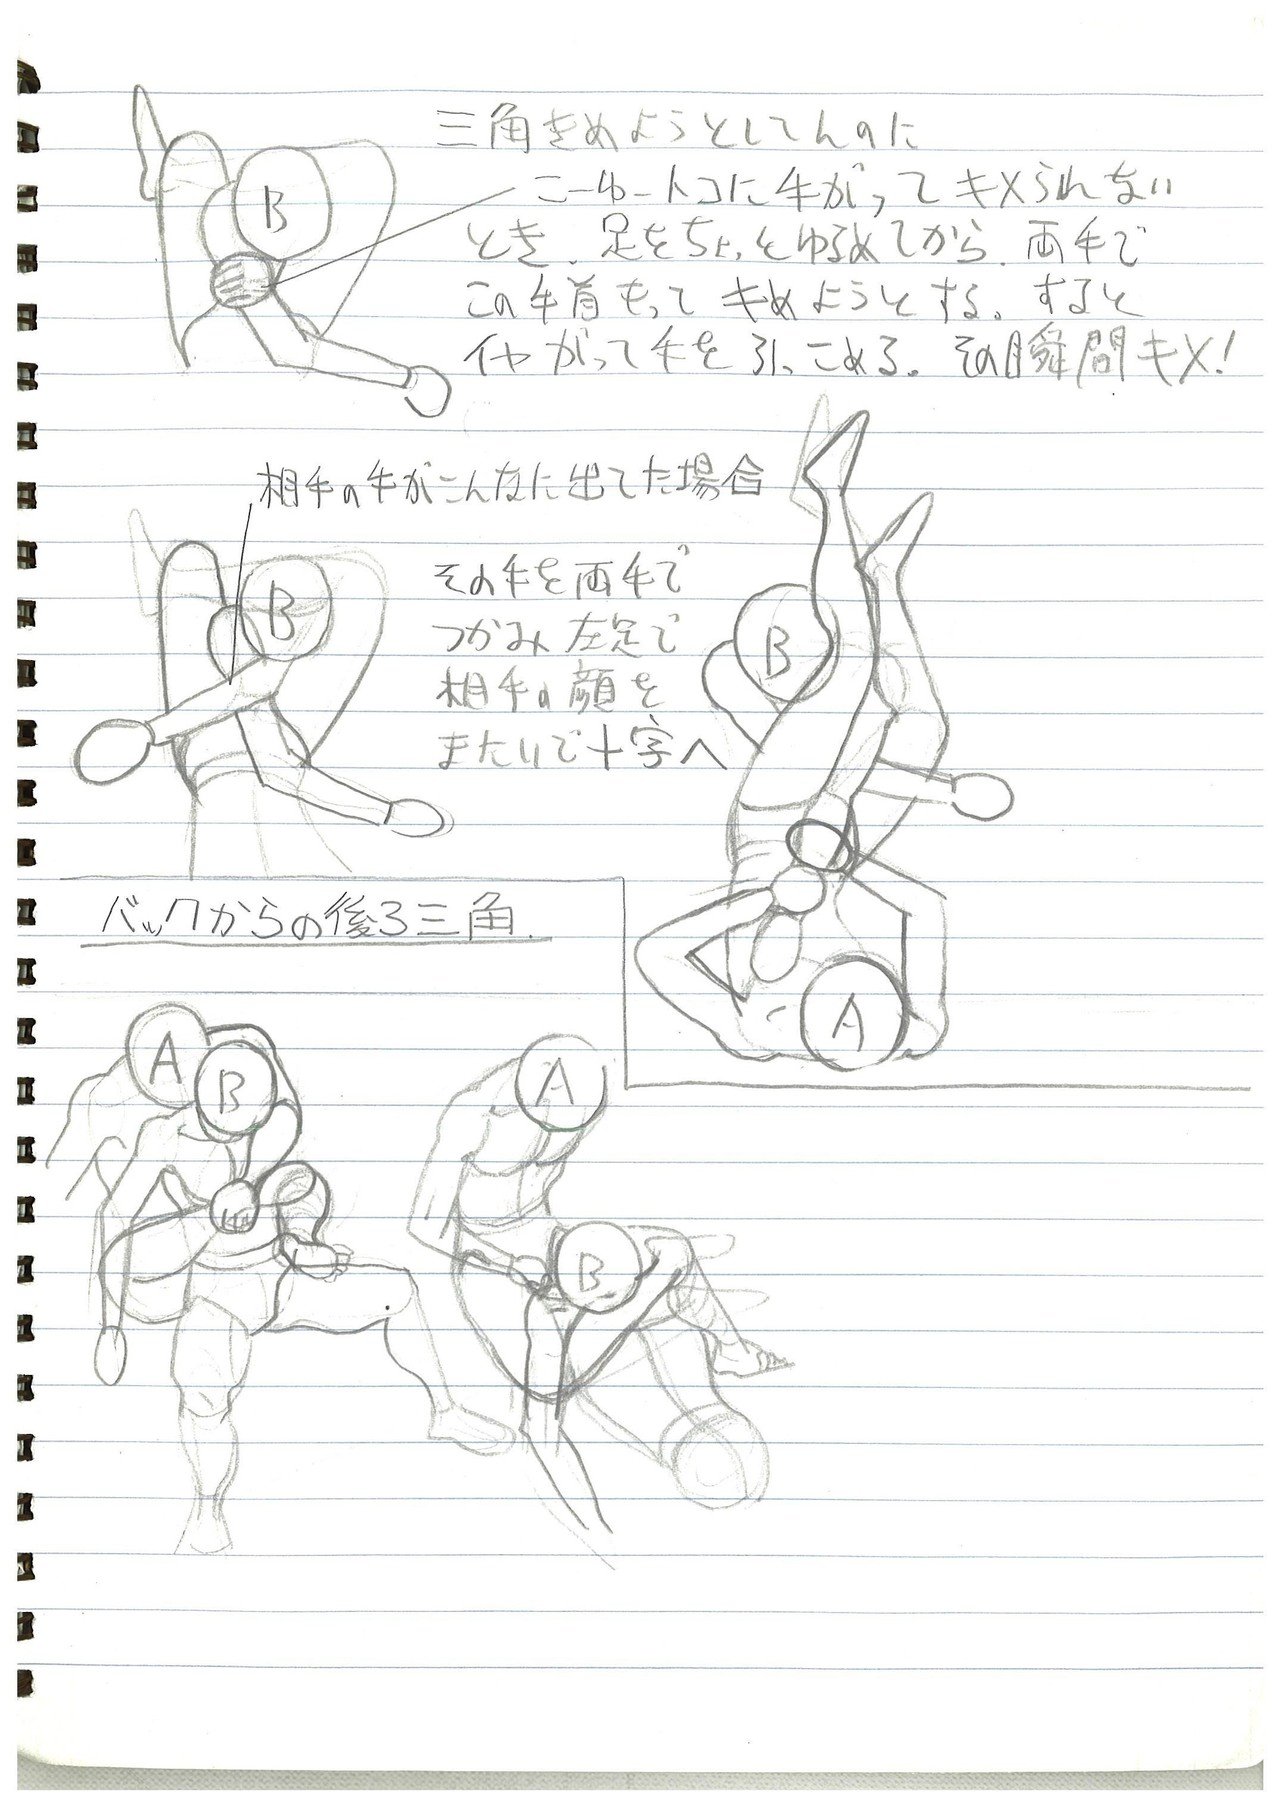 三角きめようとしてんのに
こーゆートコに手があってキメられない
とき、足をちょっとゆるめてから、両手で
この手首もって キめようとする。すると
イヤがって手を引っこめる。その瞬間キメ!
B
相手の手がこんなに出てた場合
B
その手を両手で
つかみ 左足で
相手の顔を
またいで十字へ
B
A
バックからの後ろ三角.
A
B
A
B